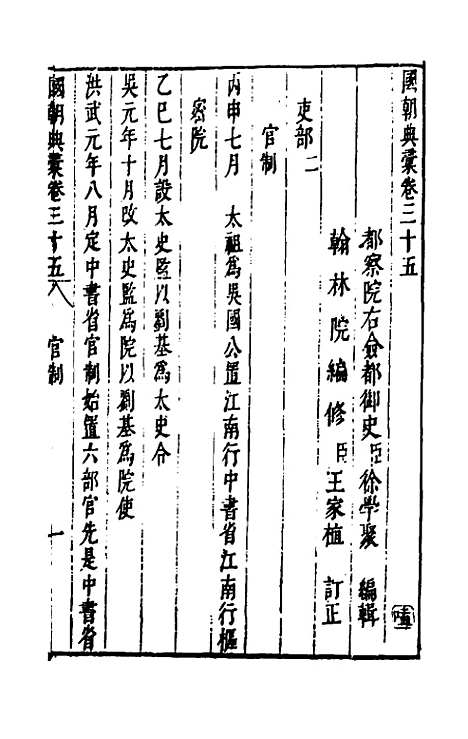 國朝典彙卷三十五
都察院右僉都御史臣徐學聚 編輯
翰林院編修臣王家植 訂正
吏部二
官制
丙申七月 太祖爲吳國公置江南行中書省江南行樞
密院
乙巳七月設太史監以劉基爲太史令
吳元年十月改太史監爲院以劉基爲院使
洪武元年八月定中書省官制始置六部官先是中書省
國朝典彙卷三十五 官制 一